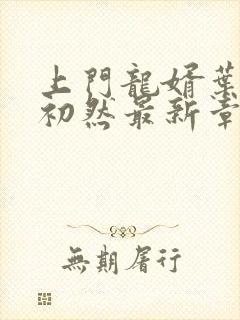 上門龍婿葉
初然最新章
無期屠行